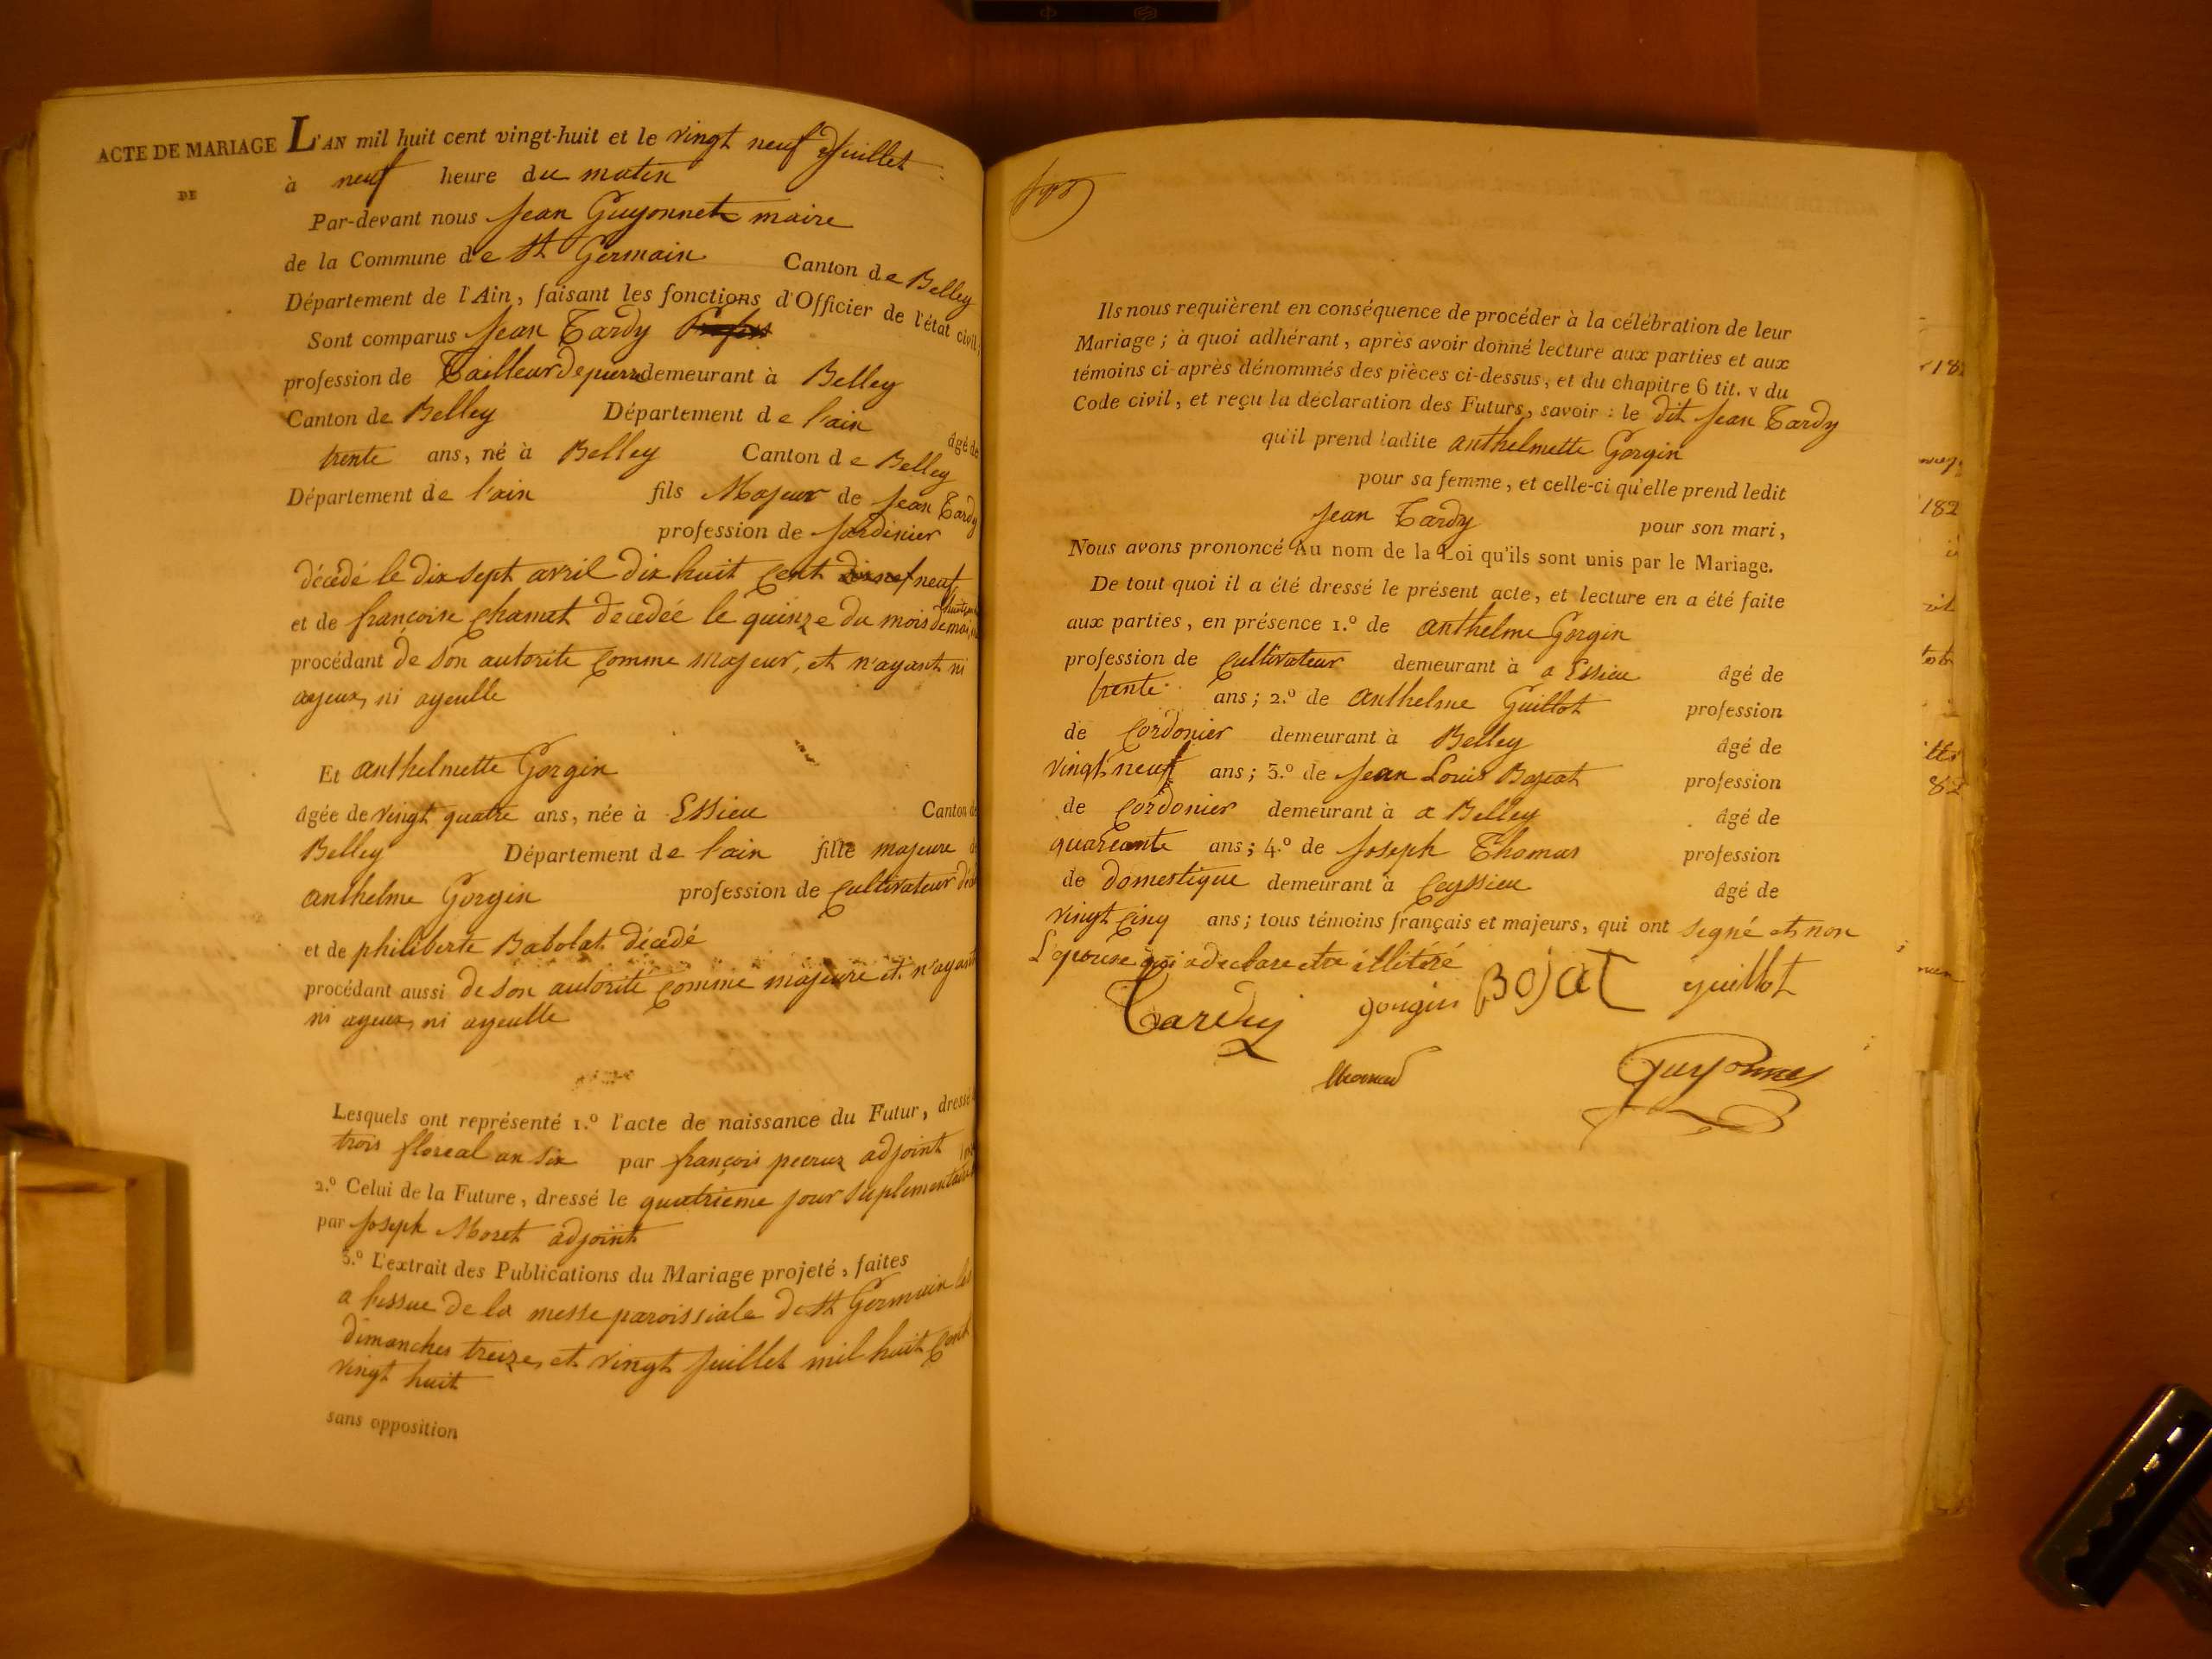 ACTE DE MARIAGE
DE
L'AN mil huit cent vingt-huit et le vingt neuf Juillet
à neuf heure du matin
Par-devant nous Jean Guyonnet maire
de la Commune de St Germain Canton de Belley
Département de l'Ain, faisant les fonctions d'Officier de l'état civil;
Sont comparus Jean Tardy
profession de Tailleur de pierre demeurant à Belley
Canton de Belley Département de l'ain âgé de
trente ans, né à Belley Canton de Belley
Département de l'ain fils Majeur de Jean Tardy
profession de Jardinier
décédé le dix sept avril dix huit cent neuf
et de françoise chamet decedée le quinze du mois de mai
procédant de son autorité comme majeur, et n'ayant ni
ayeux, ni ayeulle
Et anthelmette Gorgin
âgée de vingt quatre ans, née à Essieu Canton de
Belley Département de l'ain fille majeure de
anthelme Gorgin profession de Cultivateur
et de philiberte Babolat décédé
procédant aussi de son autorité comme majeure et n'ayant
ni ayeux, ni ayeulle
Lesquels ont représenté 1.º l'acte de naissance du Futur, dressé
trois floreal an six par françois adjoint
2.º Celui de la Future, dressé le quatrieme jour suplementaire
par Joseph Moret adjoint
3.º L'extrait des Publications du Mariage projeté, faites
a l'issue de la messe paroissiale de St Germain les
dimanches treize, et vingt Juillet mil huit cent
vingt huit
sans opposition
Ils nous requièrent en conséquence de procéder à la célébration de leur
Mariage; à quoi adhérant, après avoir donné lecture aux parties et aux
témoins ci-après dénommés des pièces ci-dessus, et du chapitre 6 tit. v du
Code civil, et reçu la déclaration des Futurs, savoir : le dit Jean Tardy
qu'il prend ladite anthelmette Gorgin
pour sa femme, et celle-ci qu'elle prend ledit
Jean Tardy pour son mari,
Nous avons prononcé Au nom de la Loi qu'ils sont unis par le Mariage.
De tout quoi il a été dressé le présent acte, et lecture en a été faite
aux parties, en présence 1.º de anthelme Gorgin
profession de Cultivateur demeurant à a Essieu âgé de
trente ans; 2.º de anthelme Guillot profession
de Cordonier demeurant à Belley âgé de
vingt neuf ans; 3.º de Jean Louis Bojeat profession
de Cordonier demeurant à a Belley âgé de
quareante ans; 4.º de Joseph Thomas profession
de domestique demeurant à Ceyssieu âgé de
vingt cinq ans; tous témoins français et majeurs, qui ont segné et non
L'epouse qui a declare etre illitéré
Tardy gougin BOJAT guillot
thomas Guyonnet